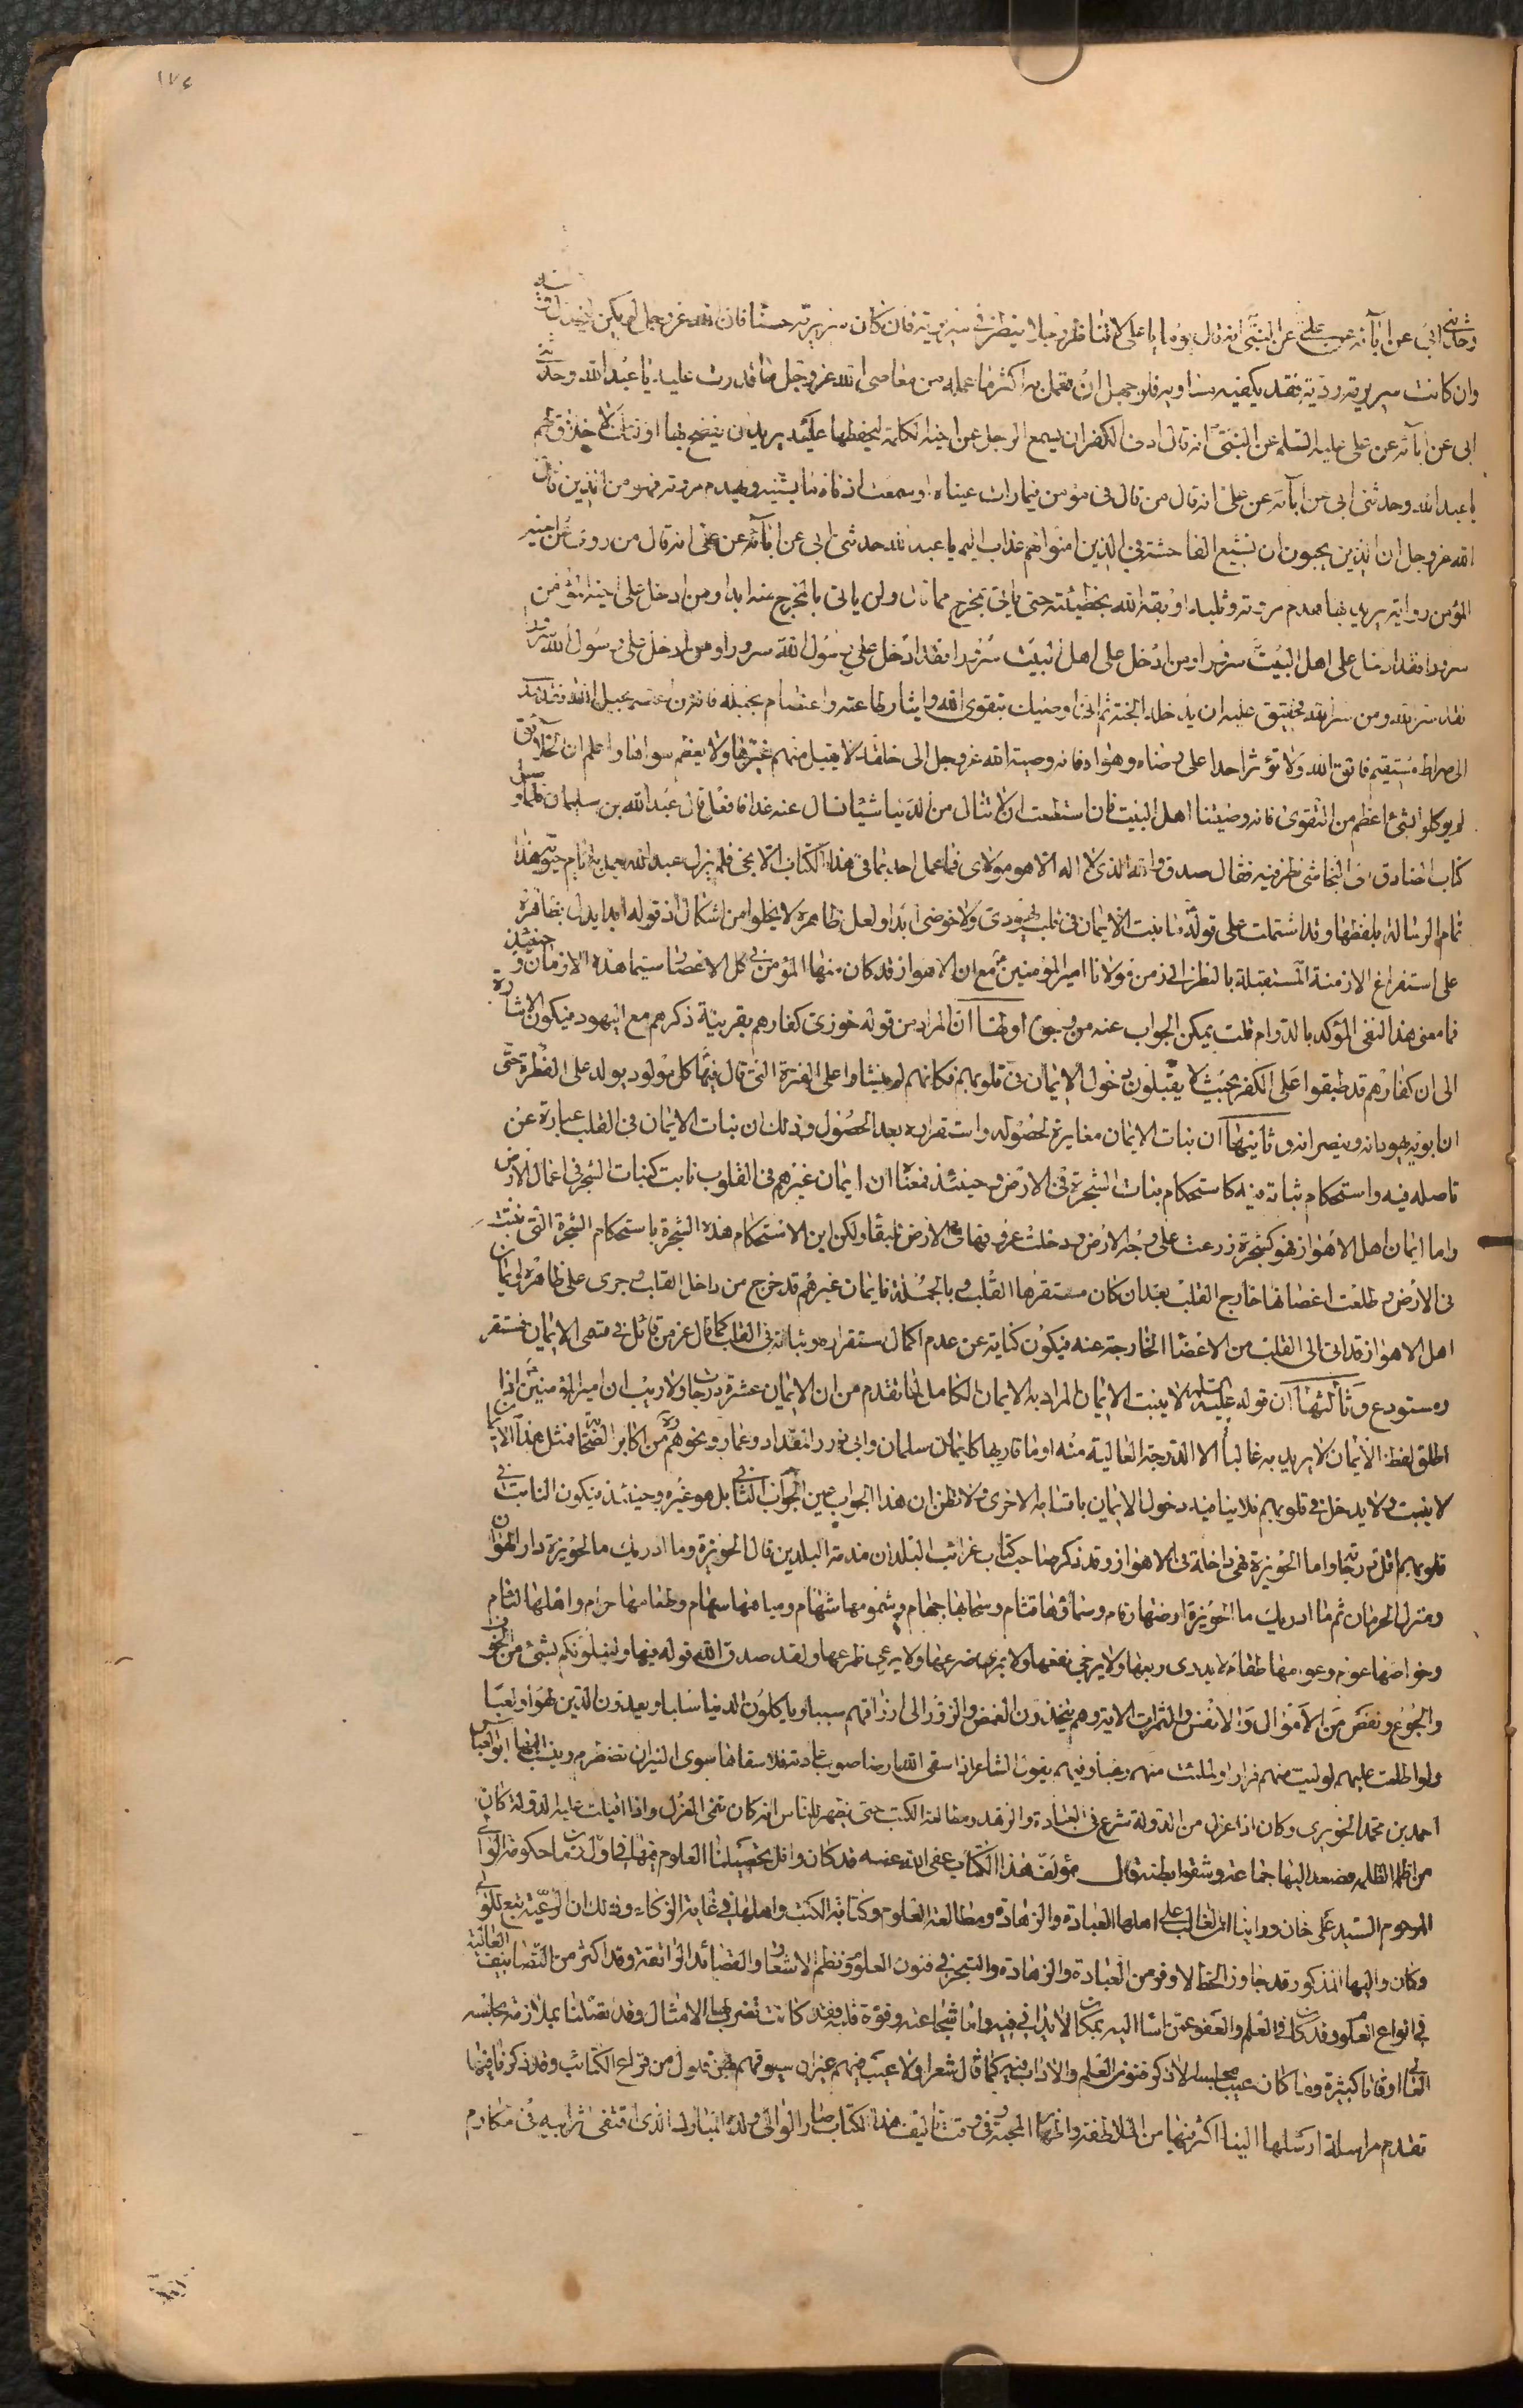 ١٧٤
وحدثني ابي عن ابآئه عن علي عن النبي انه قال يوما يا علي لا تناظر رجلا حتى تنظر في سريرته فان كان سريرته حسنا فان الله عز وجل لم يكن ليخذل وليه
وان كانت سريرته ردية فقد يكفيه مساويه فلو جهدت ان تعمل به اكثر مما عمله من معاصي الله عز وجل ما قدرت عليه يا عبد الله وحدثني
ابي عن ابآئه عن علي عليه السلم عن النبي انه قال ادنى الكفر ان يسمع الرجل عن اخيه الكلمة ليحفظها عليه يريد ان يفضحه بها اولئك لا خلاق لهم
يا عبد الله وحدثني ابي عن ابآئه عن علي انه قال من قال في مؤمن فيما رات عيناه او سمعت اذناه ما يشينه ويهدم مروته فهو من الذين قال
الله عز وجل ان الذين يحبون ان تشيع الفاحشة في الذين امنوا لهم عذاب اليم يا عبد الله حدثني ابي عن ابآئه عن علي انه قال من روى عن اخيه
المؤمن رواية يريد بها هدم مروته وثلبه اوبقه الله بخطيئته حتى ياتي بمخرج مما قال ولن ياتي بالمخرج عنه ابدا ومن ادخل على اخيه المؤمن
سرورا فقد ادخل على اهل البيت سرورا ومن ادخل على اهل البيت سرورا فقد ادخل على رسول الله سرورا ومن ادخل على رسول الله سرورا
فقد سر الله ومن سر الله فحقيق عليه ان يدخله الجنة ثم اني اوصيك بتقوى الله وايثار طاعته واعتصام بحبله فانه من اعتصم بحبل الله فقد هدي
الى صراط مستقيم فاتق الله ولا تؤثر احدا على رضاه وهواه فانه وصية الله عز وجل الى خلقه لا يقبل منهم غيرها ولا يعظم سواها واعلم ان الخلائق
لم يوكلوا بشئ اعظم من التقوى فانه وصيتنا اهل البيت فان استطعت ان لا تنال من الدنيا شيئا تسال عنه غدا فافعل قال عبد الله بن سليمان فلما وصل
كتاب الصادق الى النجاشي نظر فيه فقال صدق والله الذي لا اله الا هو مولاي فما عمل احد بما في هذا الكتاب الا نجى فلم يزل عبد الله يعمل به ايام حيوته هذا
تمام الرسالة بلفظها وقد اشتملت على قوله ما ينبت الايمان في قلب يهودي ولا خوزي ابدا ولعل ظاهره لا يخلوا من اشكال اذ قوله ابدا يدل بظاهره
على استغراغ الازمنة المستقبلة بالنظر الى زمن مولانا امير المؤمنين مع ان الاهواز قد كان منها المؤمن في كل الاعصار سيما هذه الازمان وحينئذ
فما معنى هذا النفي المؤكد بالدوام قلت يمكن الجواب عنه من وجوه اولها ان المراد من قوله خوزي كفارهم بقرينة ذكرهم مع اليهود فيكون الاشارة
الى ان كفارهم قد طبقوا على الكفر بحيث لا يقبلون دخول الايمان في قلوبهم فكانهم لم ينشاوا على الفترة التي قال فيها كل مولود يولد على الفطرة حتى
ان ابويه يهودانه وينصرانه وثانيها ان نبات الايمان مغايرة لحصوله واستقراره بعد الحصول وذلك ان نبات الايمان في القلب عبارة عن
تاصله فيه واستحكام ثباته فيه كاستحكام نبات الشجرة في الارض وحينئذ فمعناه ان ايمان غيرهم في القلوب نابت كنبات الشجر في اعماق الارض
واما ايمان اهل الاهواز فهو كشجرة زرعت على وجه الارض ودخلت عروقها في الارض تابقا ولكن اين الاستحكام هذه الشجرة باستحكام الشجرة التي نبتت
في الارض وطلعت اغصانها خارج القلب بعد ان كان مستقرها القلب وبالجملة فايمان غيرهم قد خرج من داخل القلب وجرى على ظاهره وايمان
اهل الاهواز قد اتى الى القلب من الاعضا الخارجة عنه فيكون كناية عن عدم اكمال ستقراره وثباته في القلب كما قال عز من قائل في معنى الايمان فمستقر
ومستودع وثالثها ان قوله عليه السلم لا ينبت الايمان المراد به الايمان الكامل لما تقدم من ان الايمان عشرة درجات ولا ريب ان امير المؤمنين اذا
اطلق لفظ الايمان لا يريد به غالبا الا الدرجة العالية منه او ما قاربها كايمان سلمان وابي ذر والمقداد وعمار ونحوهم من اكابر الصحابة فمثل هذا الايمان
لا ينبت ولا يدخل في قلوبهم فلا ينافيه دخول الايمان باقسامه الاخرى ولا تظن ان هذا الجواب عين الجواب الثاني بل هو غيره وحينئذ فيكون النابت في
قلوبهم اقل درجاته واما الحويزة فهي داخلة في الاهواز وقد ذكر صاحب كتاب غرائب البلدان مذمة البلدين قال الحويزة وما ادريك ما الحويزة دار الهوان
ومنزل الحرمان ثم ما ادريك ما الحويزة ارضها رغام وسماؤها قتام وسحابها جهام وسمومها سهام ومياهها سهام وطعامها حرام واهلها لئام
وخواصها عوام وعوامها طغام لا يدري ربعها ولا يرجى نفعها ولا يمري ضرعها ولا يرعى ظرعها ولقد صدق الله قوله فيها ولنبلونكم بشئ من الخوف
والجوع ونقص من الاموال والانفس والثمرات الاية وهم يتخذون الغمض والزور الى ارزاقهم سببا وياكلون الدنيا سلبا ويعدون الدين لهوا ولعبا
ولو اطلعت عليهم لوليت منهم فرارا ولملئت منهم رعبا وفيهم يقول الشاعر اذا سقى الله ارضا صوب غادته فلا سقاها سوى النيران تضطرم وينسب اليها ابو العباس
احمد بن محمد الحويزي وكان اذا عزل من الدولة شرع في العبادة والزهد ومطالعة الكتب حتى يظهر للناس انه كان يتمنى العزل واذا اقبلت عليه الدولة كان
من اظلم الظلمه فصعد اليها جماعة وشقوا بطنه قال مؤلف هذا الكتاب عفى الله عنه قد كان اوائل تحصيلنا العلوم فيها في اول زمان حكومة الوالي
المرحوم السيد علي خان وراينا الغالب على اهلها العبادة والزهادة ومطالعة العلوم وكتابة الكتب واهلها في غاية الزكاء وذلك ان الرعية تبع للوالي
وكان واليها المذكور قد جاوز الحظ الاوفر من العبادة والزهادة والتبحر في فنون العلوم ونظم الاشعار والقصائد الرائقة وقد اكثر من التصانيف الفائقة
في انواع العلوم وقد كان في العلم والعفو عمن اسا اليه بمكان لا يدانى فيه واما شجاعته وقوة قلبه فقد كانت تضرب بها الامثال وقد تفضلنا بملازمة مجلسه
العالي اوقاتا كثيرة وما كان عيب مجلسه الا ذكر فنون العلم والاداب فيه كما قال شعرا ولا عيب فيهم غير ان سيوفهم بهن فلول من قراع الكتائب وقد ذكرنا فيما
تقدم مراسلة ارسلها الينا اكثر فيها من الملاطفة واظهار المحبة وفي وقت تاليف هذا الكتاب صار الوالي ولده المبارك الذي اقتفى اثر ابيه في مكارم